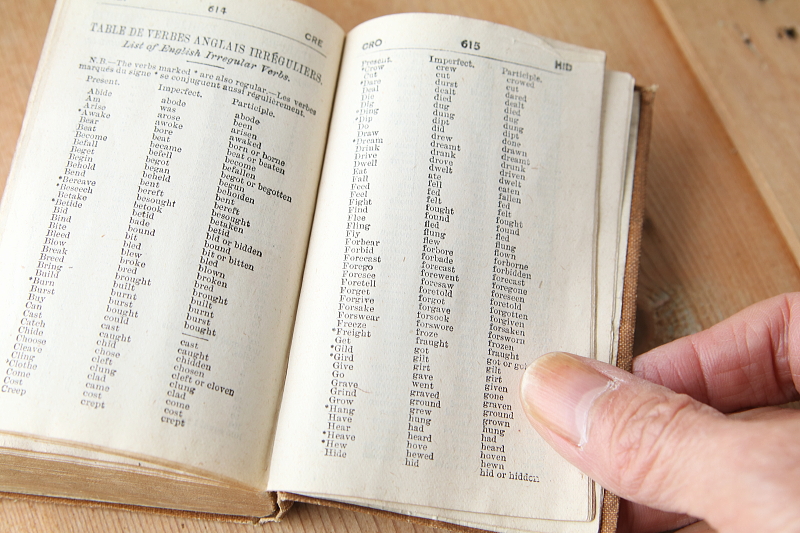 614 CRE
TABLE DE VERBES ANGLAIS IRRÉGULIERS.
List of English Irregular Verbs.
N.B.—The verbs marked * are also regular.—Les verbes
marqués du signe * se conjuguent aussi régulièrement.
Present. Imperfect. Participle.
Abide abode abode
Am was been
Arise arose arisen
*Awake awoke awaked
Bear bore born or borne
Beat beat beat or beaten
Become became become
Befall befell befallen
Beget begot begot or begotten
Begin began begun
Behold beheld beholden
Bend bent bent
*Bereave bereft bereft
*Beseech besought besought
Betake betook betaken
*Betide betid betid
Bid bade bid or bidden
Bind bound bound
Bite bit bit or bitten
Bleed bled bled
Blow blew blown
Break broke broken
Breed bred bred
Bring brought brought
Build built built
*Burn burnt burnt
Burst burst burst
Buy bought bought
Can could —
Cast cast cast
Catch caught caught
Chide chid chidden
Choose chose chosen
Cleave cleft cleft or cloven
Cling clung clung
*Clothe clad clad
Come came come
Cost cost cost
Creep crept crept
CRO 615 HID
Present. Imperfect. Participle.
*Crow crew crowed
Cut cut cut
*Dare durst dared
Deal dealt dealt
Die died died
Dig dug dug
*Ding dung dung
*Dip dipt dipt
Do did done
Draw drew drawn
*Dream dreamt dreamt
Drink drank drunk
Drive drove driven
Dwell dwelt dwelt
Eat ate eaten
Fall fell fallen
Feed fed fed
Feel felt felt
Fight fought fought
Find found found
Flee fled fled
Fling flung flung
Fly flew flown
Forbear forbore forborne
Forbid forbade forbidden
Forecast forecast forecast
Forego forewent foregone
Foresee foresaw foreseen
Foretell foretold foretold
Forget forgot forgotten
Forgive forgave forgiven
Forsake forsook forsaken
Forswear forswore forsworn
Freeze froze frozen
*Freight fraught fraught
Get got got or
*Gild gilt gilt
*Gird girt girt
Give gave given
Go went gone
Grave graved graven
Grind ground ground
Grow grew grown
*Hang hung hung
Have had had
Hear heard heard
*Heave hove hoven
*Hew hewed hewn
Hide hid hid or hidden